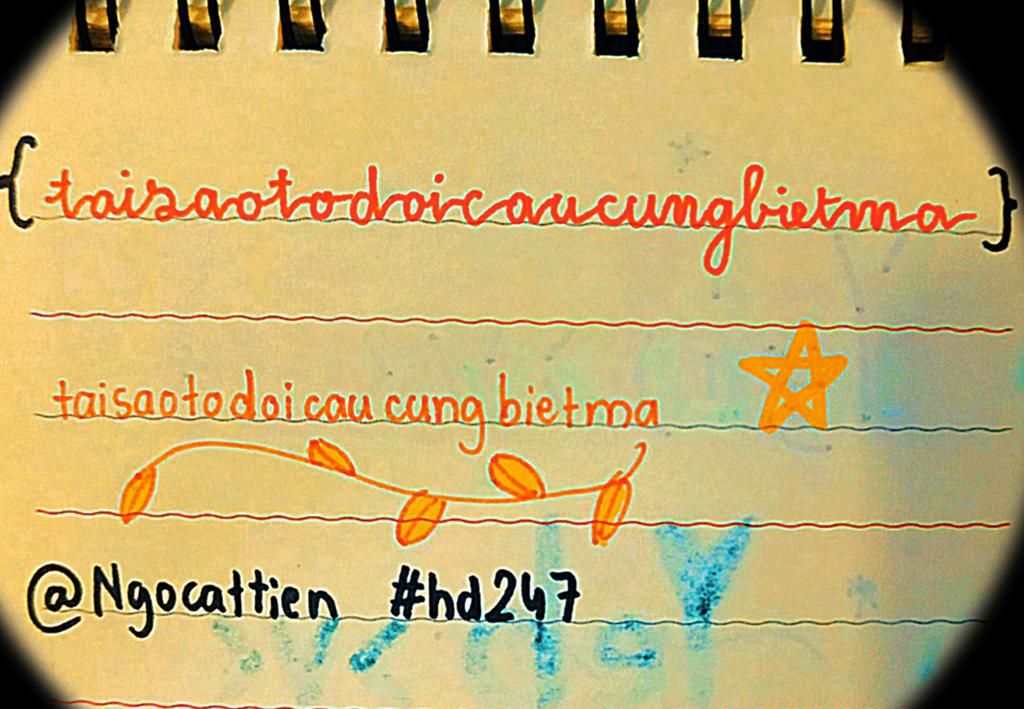 {taisaotodoicaucungbietma}
taisaotodoicau cung bietma
@Ngocattien #hd247